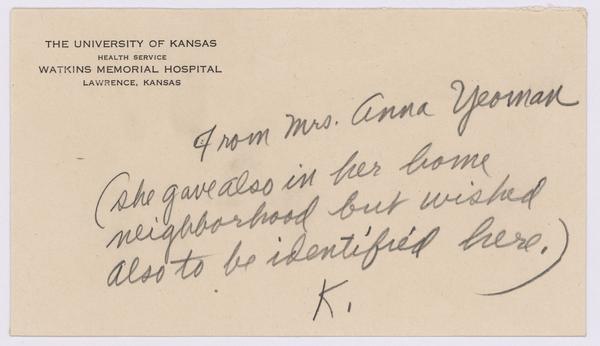 THE UNIVERSITY OF KANSAS
HEALTH SERVICE
WATKINS MEMORIAL HOSPITAL
LAWRENCE, KANSAS
From Mrs. Anna Yeoman
(she gave also in her home
neighborhood but wished
also to be identified here.)
K.